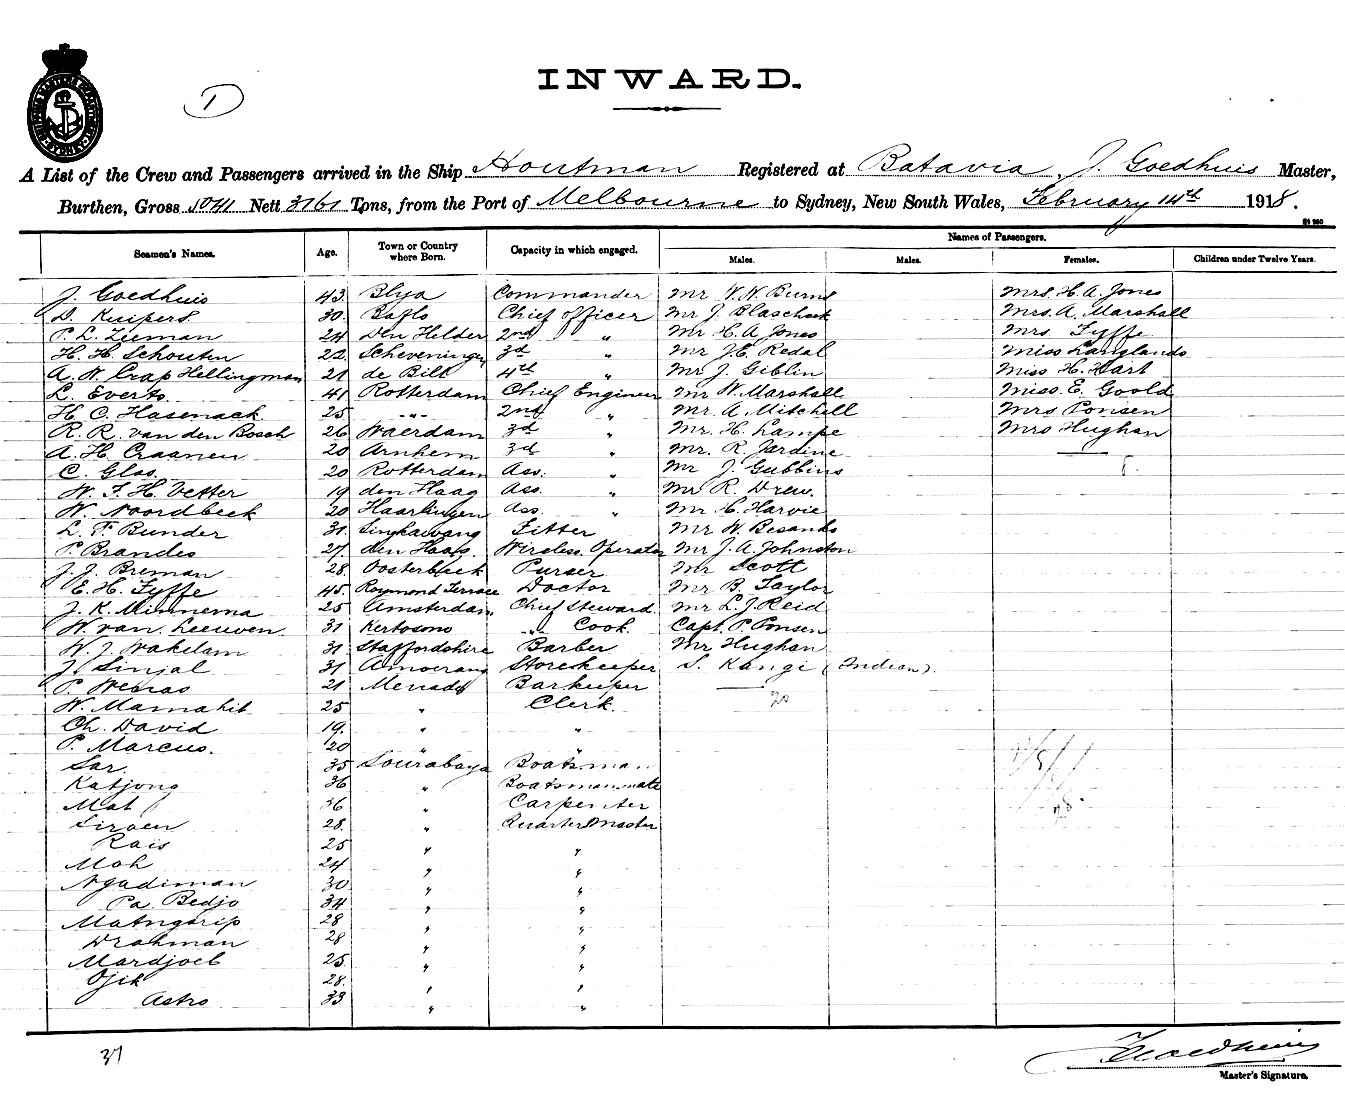 INWARD.
1
A List of the Crew and Passengers arrived in the Ship Houtman Registered at Batavia, J. Goedhuis Master,
Burthen, Gross 5041 Nett 3161 Tons, from the Port of Melbourne to Sydney, New South Wales, February 14th 1918.
Names of Passengers.
Seamen's Names. Age. Town or Country where Born. Capacity in which engaged. Males. Males. Females. Children under Twelve Years.
J. Goedhuis 43 Blya Commander Mr V. N. Burns Mrs. H. A. Jones
D. Kuipers 30 Baflo Chief officer Mr J. Blaschek Mrs. A. Marshall
P. L. Zeeman 24 Den Helder 2nd " Mr H. A. Jones Mrs Fyffe
H. H. Schouten 22 Scheveningen 3d " Mr J. E. Redal Miss Langlands
A. W. Crap Hellingman 21 de Bilt 4th " Mr J. Giblin Miss H. Hart
L. Everts 41 Rotterdam Chief Engineer Mr W. Marshall Miss. E. Goold
H. C. Hasenack 25 -"- 2nd " Mr. A. Mitchell Mrs Ponsen
R. R. van den Bosch 26 Waerdam 3d " Mr. H. Lampe Mrs Hughan
A. H. Craanen 20 Arnhem 3d " Mr. R. Jardine
C. Glas. 20 Rotterdam Ass. " Mr J. Gubbins 8.
W. F. H. Vetter 19 den Haag Ass. " Mr R. Drew.
W. Noordbeek 20 Haarlingen Ass. " Mr H. Harvie
L. F. Bunder 31 Singkawang Fitter Mr W. Besanko
P. Brandes 27 den Haag. Wireless Operator Mr J. A. Johnston
J. J. Breman 28 Oosterbeek Purser Mr Scott
E. H. Fyffe 45. Raymond Terrace Doctor Mr B. Taylor
J. K. Minnema 25 Amsterdam Chief Steward. Mr L. J. Reid
W. van Leeuven 31 Kertosono -"- Cook. Capt. P. Ponsen
W. J. Wakelam 31 Staffordshire Barber Mr Hughan
J. Sinjal 31 Amoerang Storekeeper S. Kangi (Indian).
P. Wenas 21 Menado Barkeeper
W. Mamahit 25 " Clerk. 20
Ch. David 19. " "
P. Marcus. 20 " "
Sar. 35 Sourabaya Boatsman
Katjong 36 " Boatsman mate
Mat 36 " Carpenter
Siroen 28. " Quarter Master 28.
Rais 25 " "
Moh 24 " "
Ngadiman 30 " "
Pa Bedjo 34 " "
Matngarip 28 " "
Drahman 28 " "
Mardjoeb 25. " "
Ojik 28. " "
Astro 33 " "
37
J Goedhuis
Master's Signature.